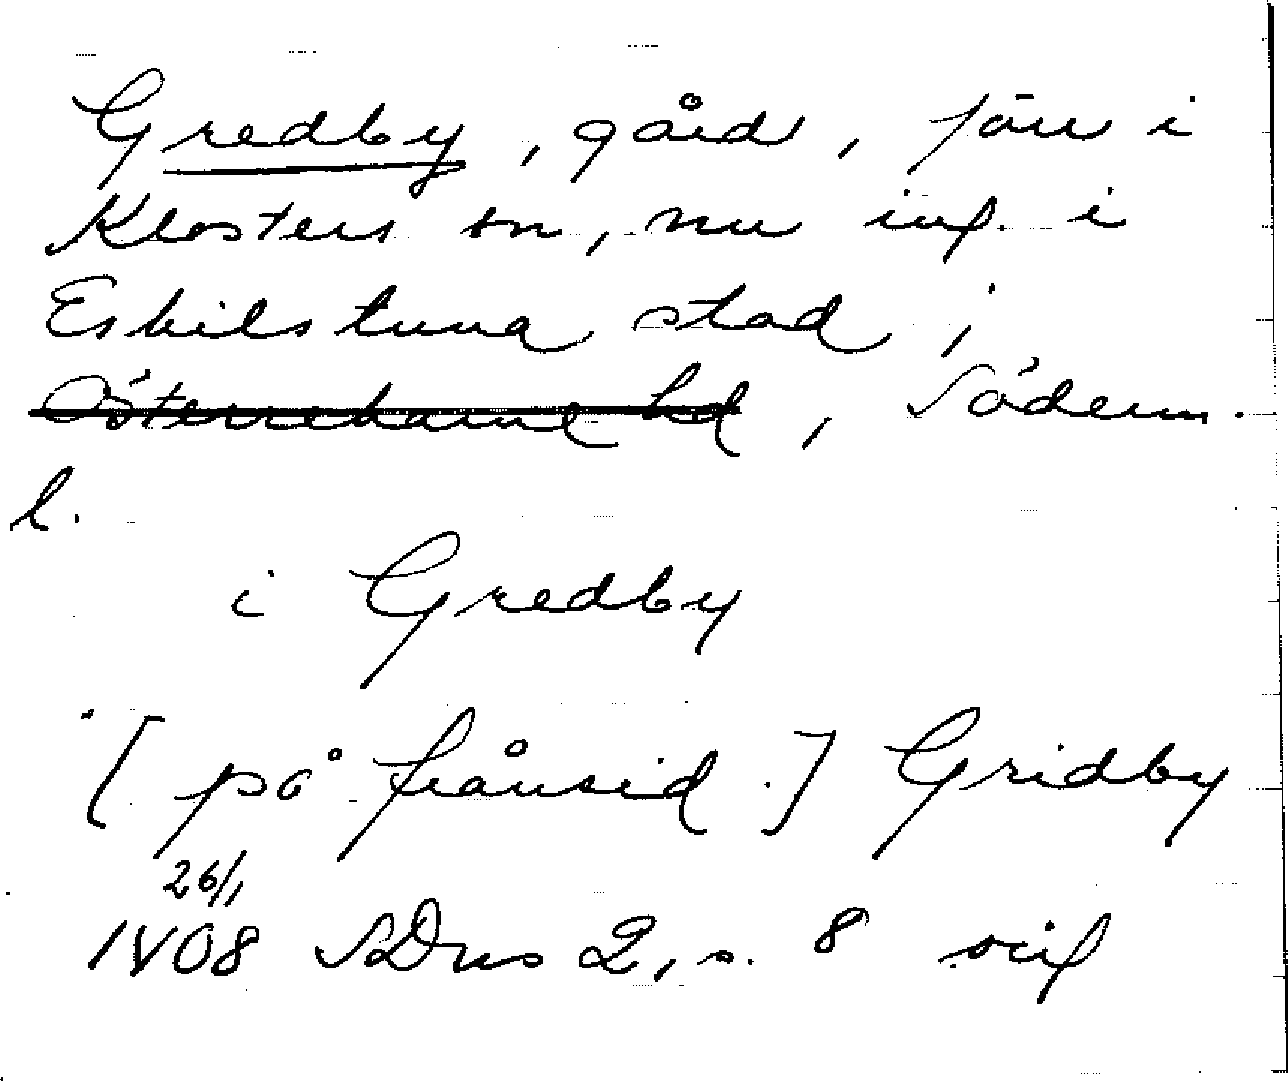 Gredby, gård, förr i
Klosters sn, nu inf. i
Eskilstuna stad,
Österrekarne hd, Söderm.
l.
i Gredby
[på frånsid.] Gridby
26/1
1408 SDns 2, s. 8 orif